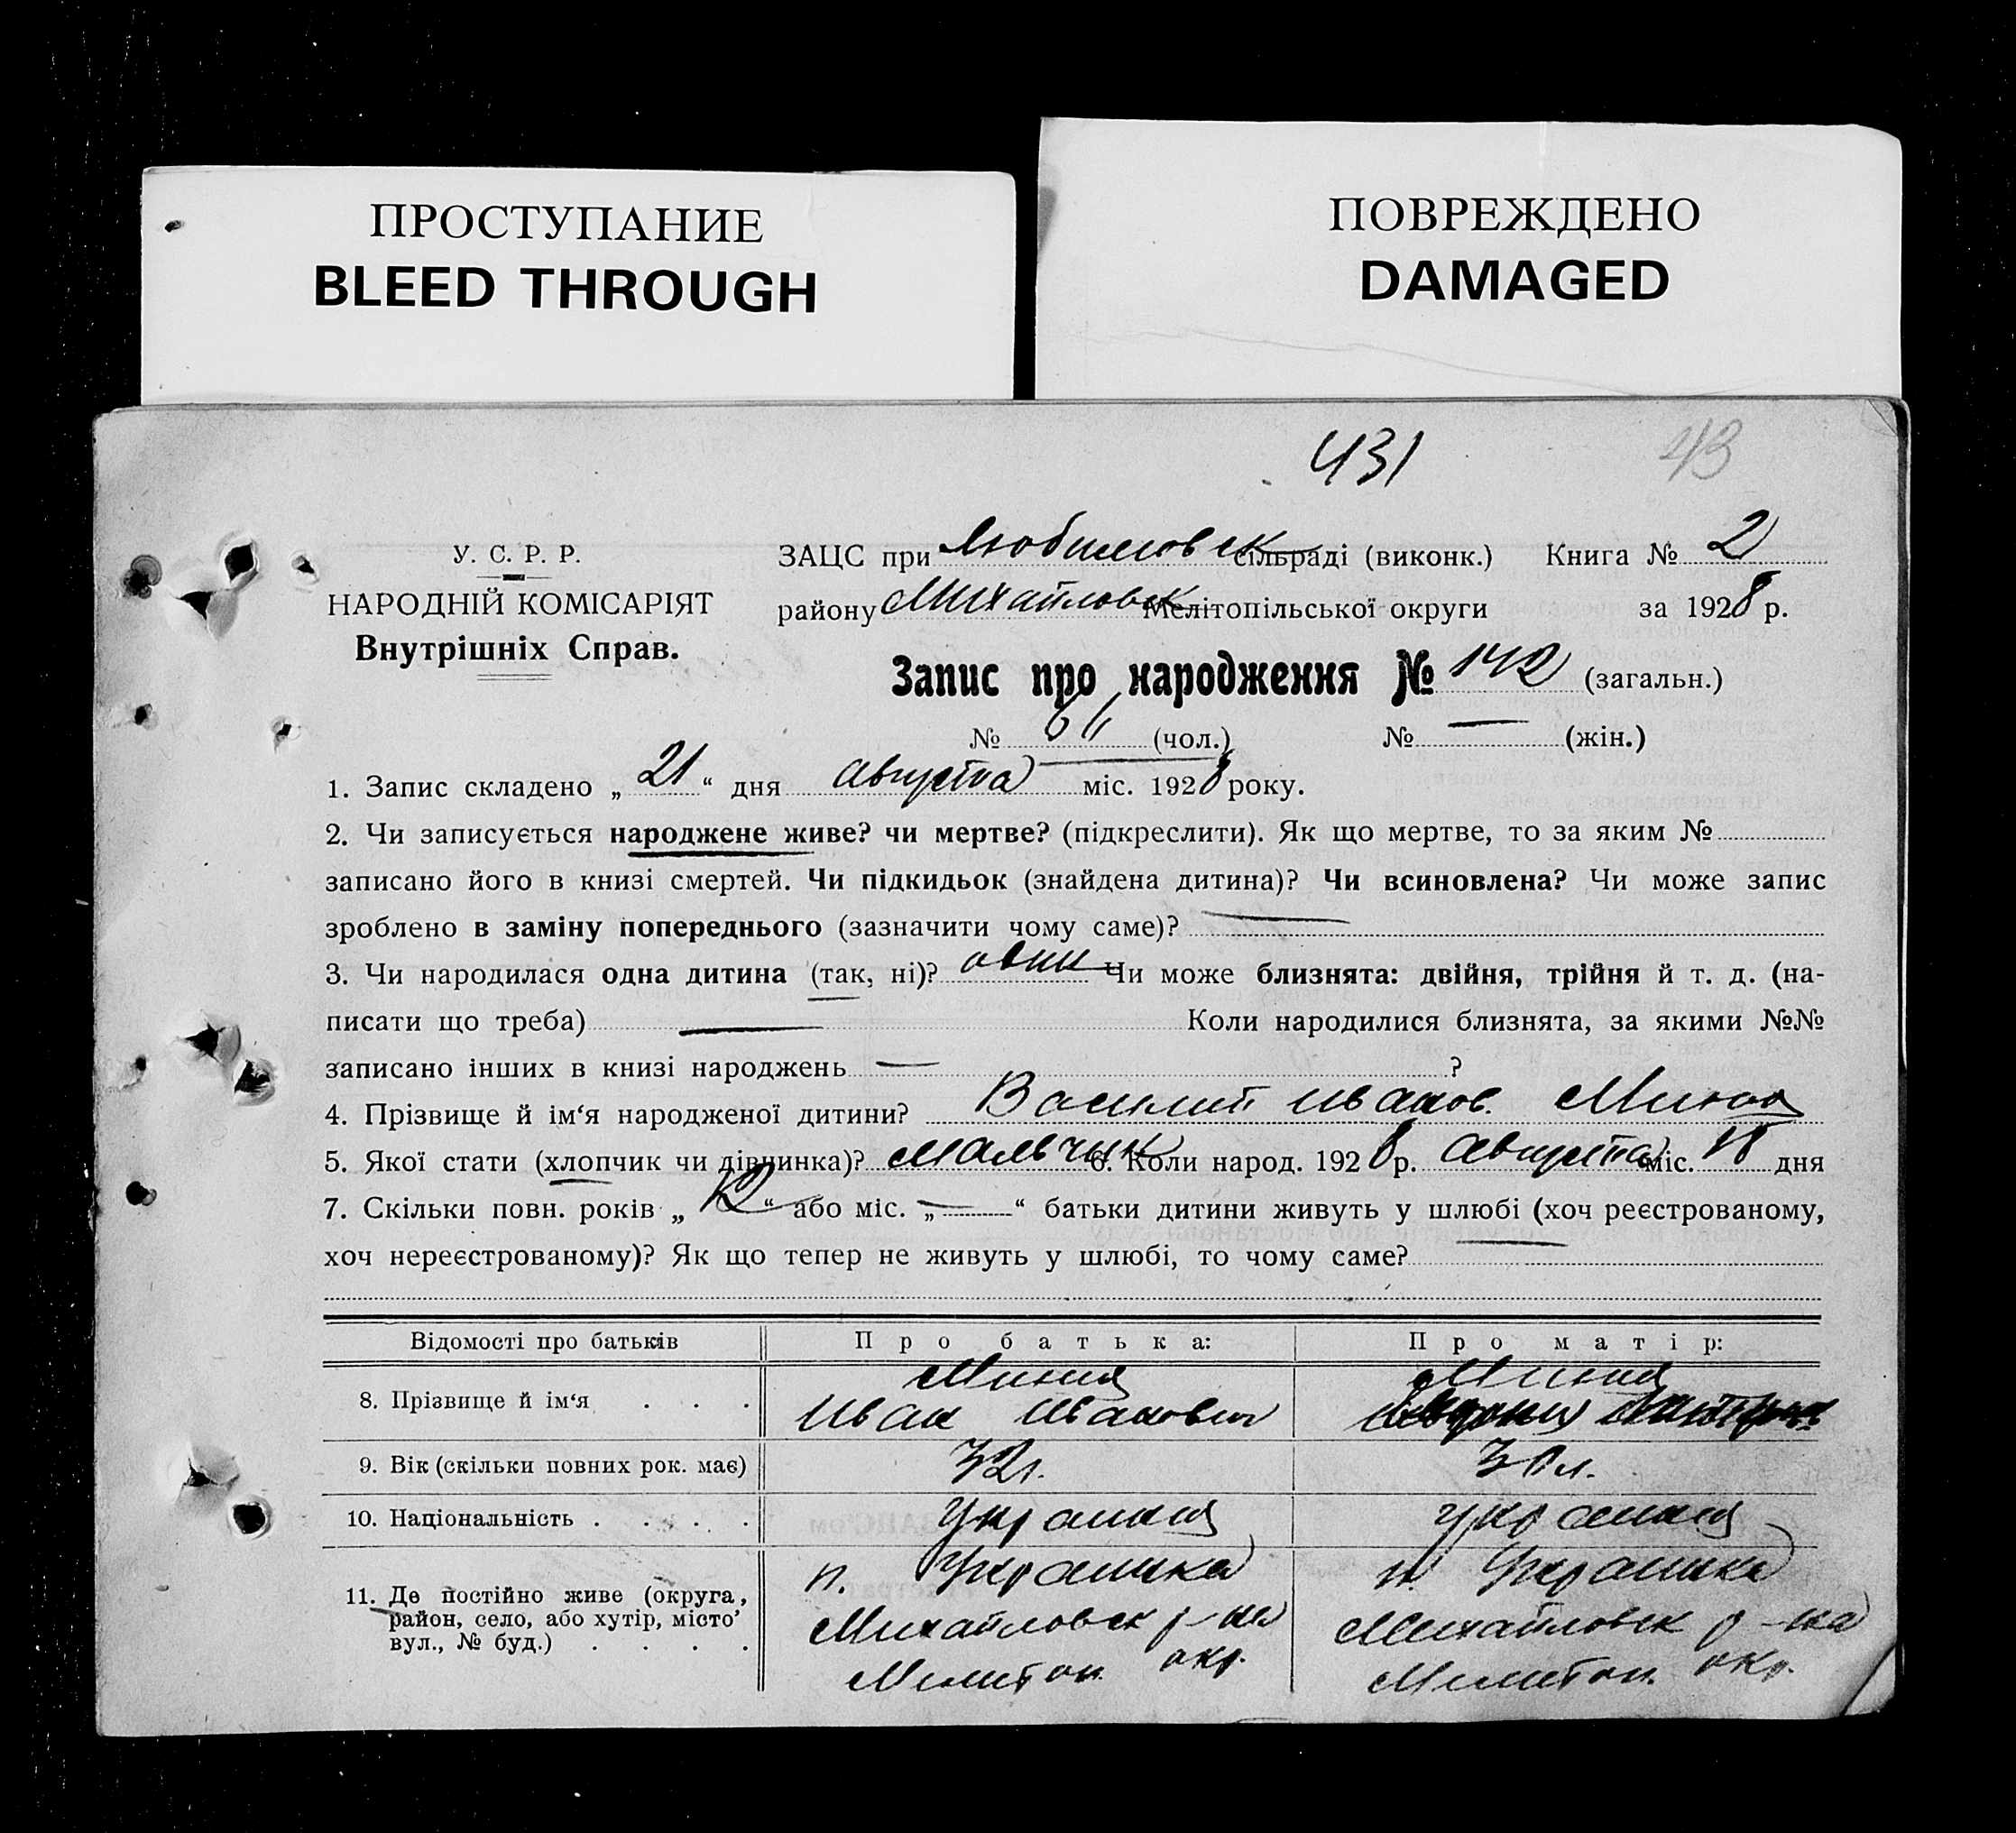 ПРОСТУПАНИЕ
BLEED THROUGH
ПОВРЕЖДЕНО
DAMAGED
431
43
У. С. Р. Р.
НАРОДНІЙ КОМІСАРІЯТ
Внутрішніх Справ.
ЗАЦС при Любимовск сільраді (виконк.) Книга № 2
району Михайловск Мелітопільської округи за 1928 р.
Запис про народження № 142 (загальн.)
№ (чол.) № — (жін.)
1. Запис складено „ 21 “ дня августа міс. 1928 року.
2. Чи записується народжене живе? чи мертве? (підкреслити). Як що мертве, то за яким №
записано його в книзі смертей. Чи підкидьок (знайдена дитина)? Чи всиновлена? Чи може запис
зроблено в заміну попереднього (зазначити чому саме)? —
3. Чи народилася одна дитина (так, ні)? один Чи може близнята: двійня, трійня й т. д. (на-
писати що треба) — Коли народилися близнята, за якими №№
записано інших в книзі народжень — ?
4. Прізвище й ім‘я народженої дитини? Василий Иванов.
5. Якої стати (хлопчик чи дівчинка)? Мальчик 6. Коли народ. 1928 р. Августа міс. 18 дня
7. Скільки повн. років „ 12 “ або міс. „ — “ батьки дитини живуть у шлюбі (хоч реєстрованому,
хоч нереєстрованому)? Як що тепер не живуть у шлюбі, то чому саме? —
Відомості про батьків Про батька: Про матір:
8. Прізвище й ім‘я . . .
Иван Иванович
9. Вік (скільки повних рок. має) 32 г. 30 л.
10. Національність . . . .
11. Де постійно живе (округа,
район, село, або хутір, місто’
вул., № буд.) . . . .
п. Украинка
Михайловск р-на
Мелитоп. окр.
п. Украинка
Михайловск р-на
Мелитоп. окр.